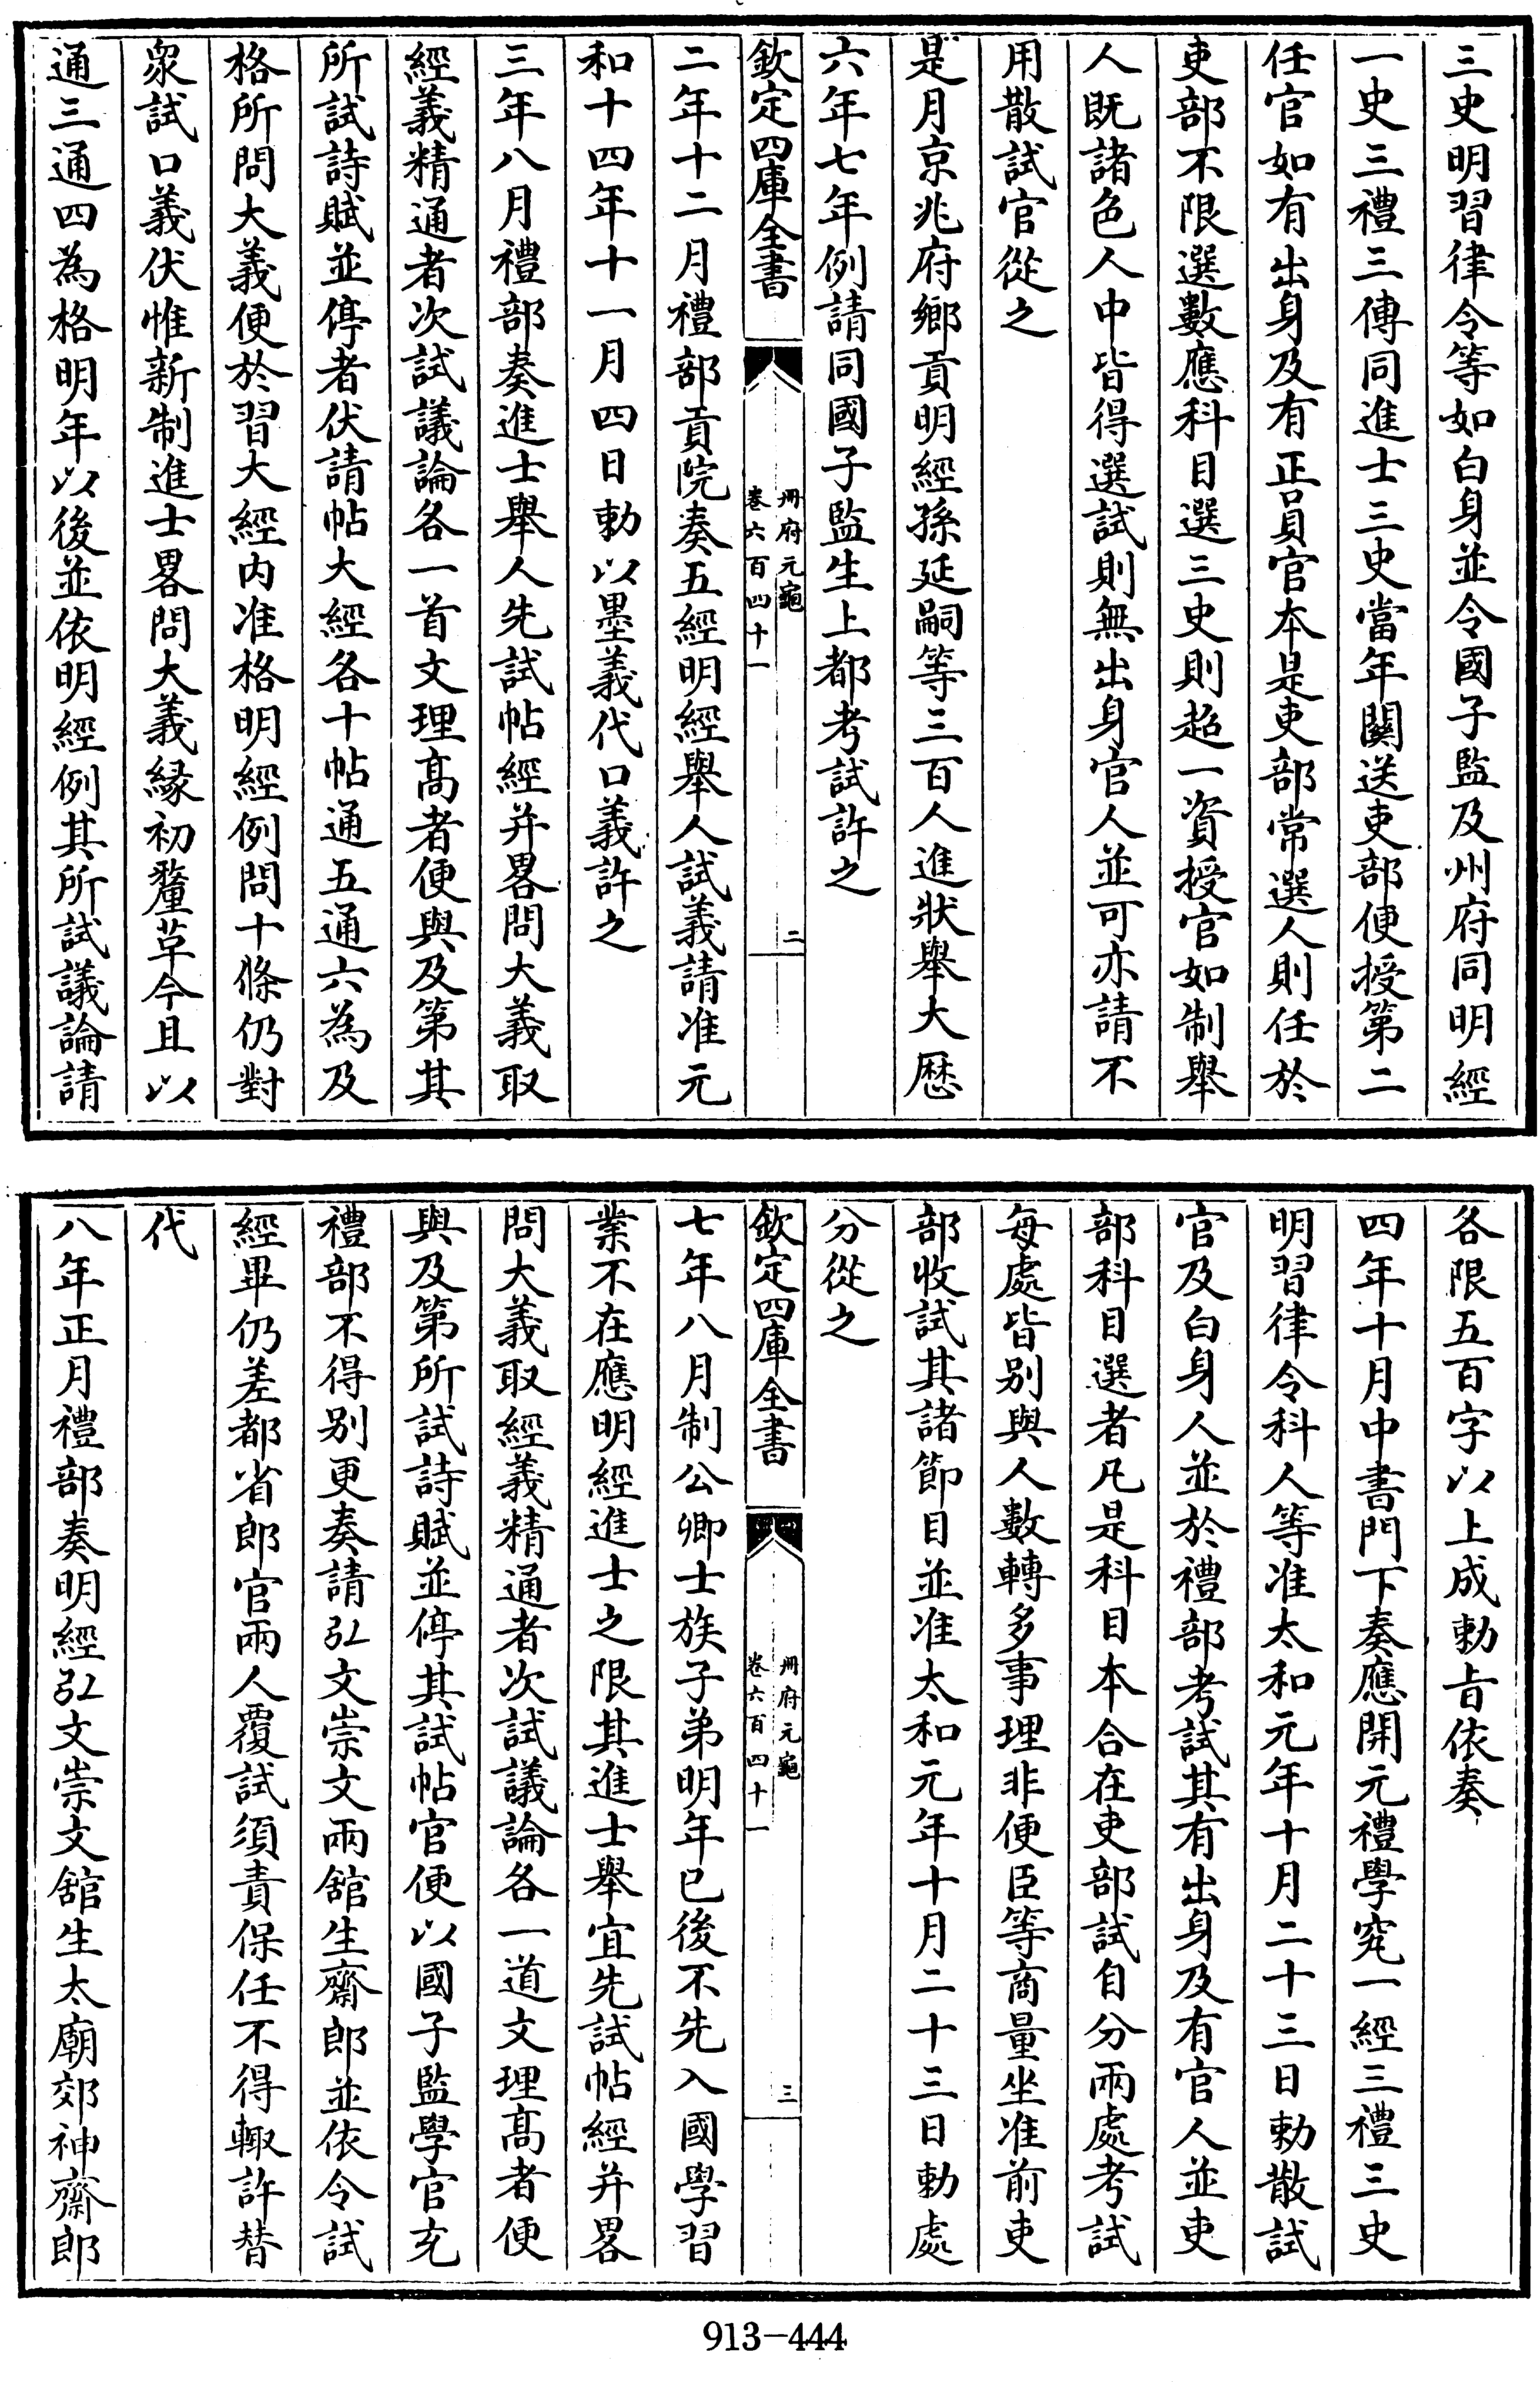 三史明習律令等如白身並令國子監及州府同明經
一史三禮三傳同進士三史當年關送吏部便授第二
任官如有出身及有正員官本是吏部常選人則任於
吏部不限選數應科目選三史則超一資授官如制舉
人既諸色人中皆得選試則無出身官人並可亦請不
用散試官從之
是月京兆府鄉貢明經孫延嗣等三百人進狀舉大厯
六年七年例請同國子監生上都考試許之
欽定四庫全書
冊府元龜
卷六百四十一
二
二年十二月禮部貢院奏五經明經舉人試義請准元
和十四年十一月四日勅以墨義代口義許之
三年八月禮部奏進士舉人先試帖經并畧問大義取
經義精通者次試議論各一首文理高者便與及第其
所試詩賦並停者伏請帖大經各十帖通五通六為及
格所問大義便於習大經内准格明經例問十條仍對
衆試口義伏惟新制進士畧問大義緣初釐革今且以
通三通四為格明年以後並依明經例其所試議論請
各限五百字以上成勅旨依奏
四年十月中書門下奏應開元禮學究一經三禮三史
明習律令科人等准太和元年十月二十三日勅散試
官及白身人並於禮部考試其有出身及有官人並吏
部科目選者凡是科目本合在吏部試自分兩處考試
每處皆别與人數轉多事理非便臣等商量坐准前吏
部收試其諸節目並准太和元年十月二十三日勅處
分從之
欽定四庫全書
冊府元龜
卷六百四十一
三
七年八月制公卿士族子弟明年已後不先入國學習
業不在應明經進士之限其進士舉宜先試帖經并畧
問大義取經義精通者次試議論各一道文理高者便
與及第所試詩賦並停其試帖官便以國子監學官充
禮部不得别更奏請弘文崇文兩舘生齋郎並依令試
經畢仍差都省郎官兩人覆試須責保任不得輙許替
代
八年正月禮部奏明經弘文崇文舘生太廟郊神齋郎
913-444